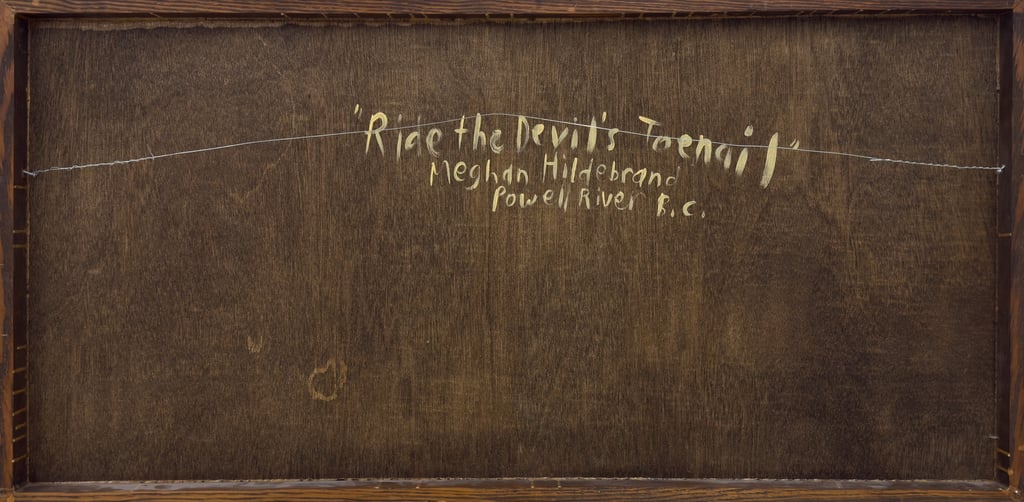 "Ride the Devil's Toenail"
Meghan Hildebrand
Powell River B.C.